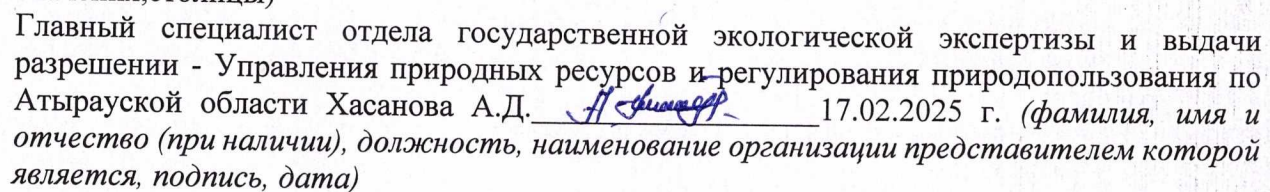 Главный специалист отдела государственной экологической экспертизы и выдачи
разрешении - Управления природных ресурсов и регулирования природопользования по
Атырауской области Хасанова А.Д.____________________17.02.2025 г. (фамилия, имя и
отчество (при наличии), должность, наименование организации представителем которой
является, подпись, дата)